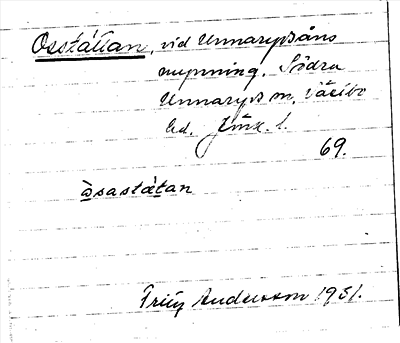 Osstätan, vid Unnarydsåns
mynning. Södra
Unnaryds sn, Västbo
hd. Jönk. l.
69.
åsastätan
Frity Andersson 1931.